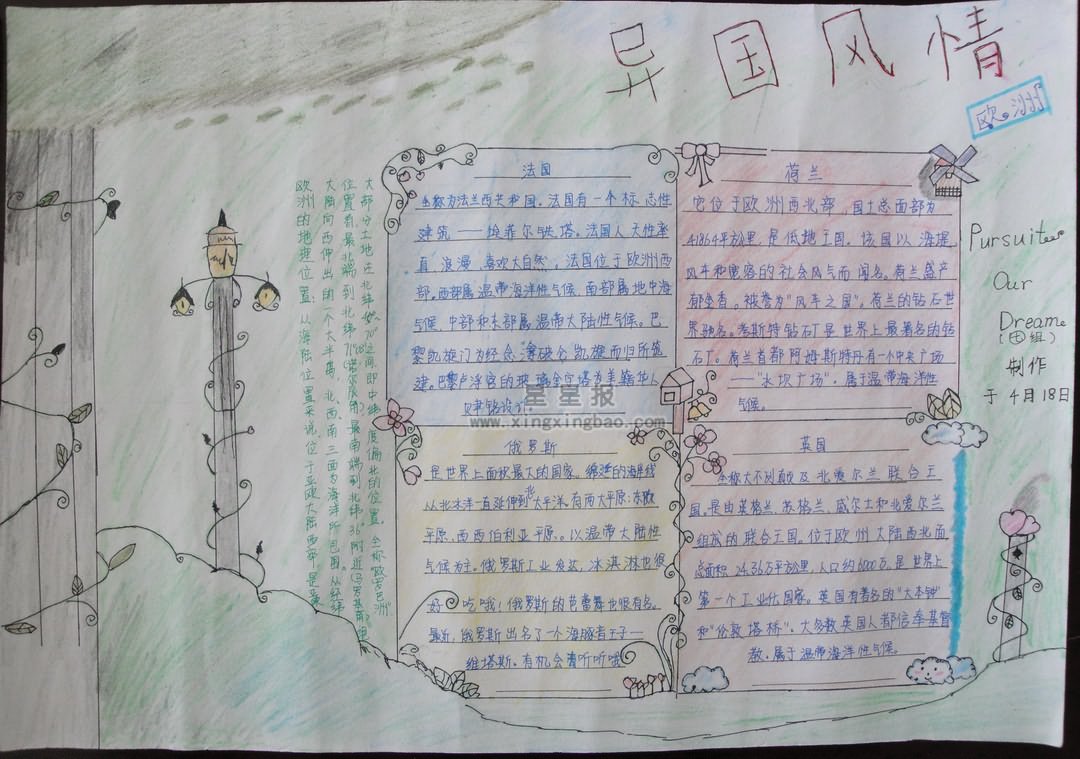 异国风情
欧洲
法国
全称为法兰西共和国。法国有一个标志性
建筑——埃菲尔铁塔。法国人天性率
直、浪漫、喜欢大自然，法国位于欧洲西
部。西部属温带海洋性气候，南部属地中海
气候，中部和东部属温带大陆性气候。巴
黎凯旋门为纪念拿破仑凯旋而归所筑
建。巴黎卢浮宫的玻璃金字塔为美籍华人
贝聿铭设计。
荷兰
它位于欧洲西北部，国土总面部为
41864平方公里，是低地王国。该国以海堤、
风车和宽容的社会风气而闻名。荷兰盛产
郁金香。被誉为"风车之国"。荷兰的钻石世
界驰名。考斯特钻石厂是世界上最著名的钻
石厂。荷兰首都阿姆斯特丹有一个中央广场
——"水坝广场"。属于温带海洋性
气候。
俄罗斯
是世界上面积最大的国家。绵延的海岸线
从北冰洋一直延伸到北太平洋。有两大平原：东欧
平原、西西伯利亚平原。以温带大陆性
气候为主。俄罗斯工业发达，冰淇淋也很
好吃哦！俄罗斯的芭蕾舞也很有名。
最近，俄罗斯出名了一个海豚音王子—
维塔斯。有机会请听听哦
英国
全称大不列颠及北爱尔兰联合王
国。是由英格兰、苏格兰、威尔士和北爱尔兰
组成的联合王国。位于欧州大陆西北面
总面积24.36万平方公里，人口约6000万。是世界上
第一个工业化国家。英国有著名的"大本钟"
和"伦敦塔桥"。大多数英国人都信奉基督
教。属于温带海洋性气候。
欧洲的地理位置：从海陆位置来说，位于亚欧大陆西部，是亚欧
大陆向西伸出的一个大半岛，北、西、南三面为海洋所包围。从经纬
位置看，最北端到北纬71°08′(诺尔辰角)最南端到北纬36°附近(马罗基角)
大部分土地在北纬
70°之间，即中纬度偏北的位置。全称"欧罗巴洲"
Pursuite
Our
Dream
(田组)
制作
于4月18日
星星报
www.xingxingbao.com